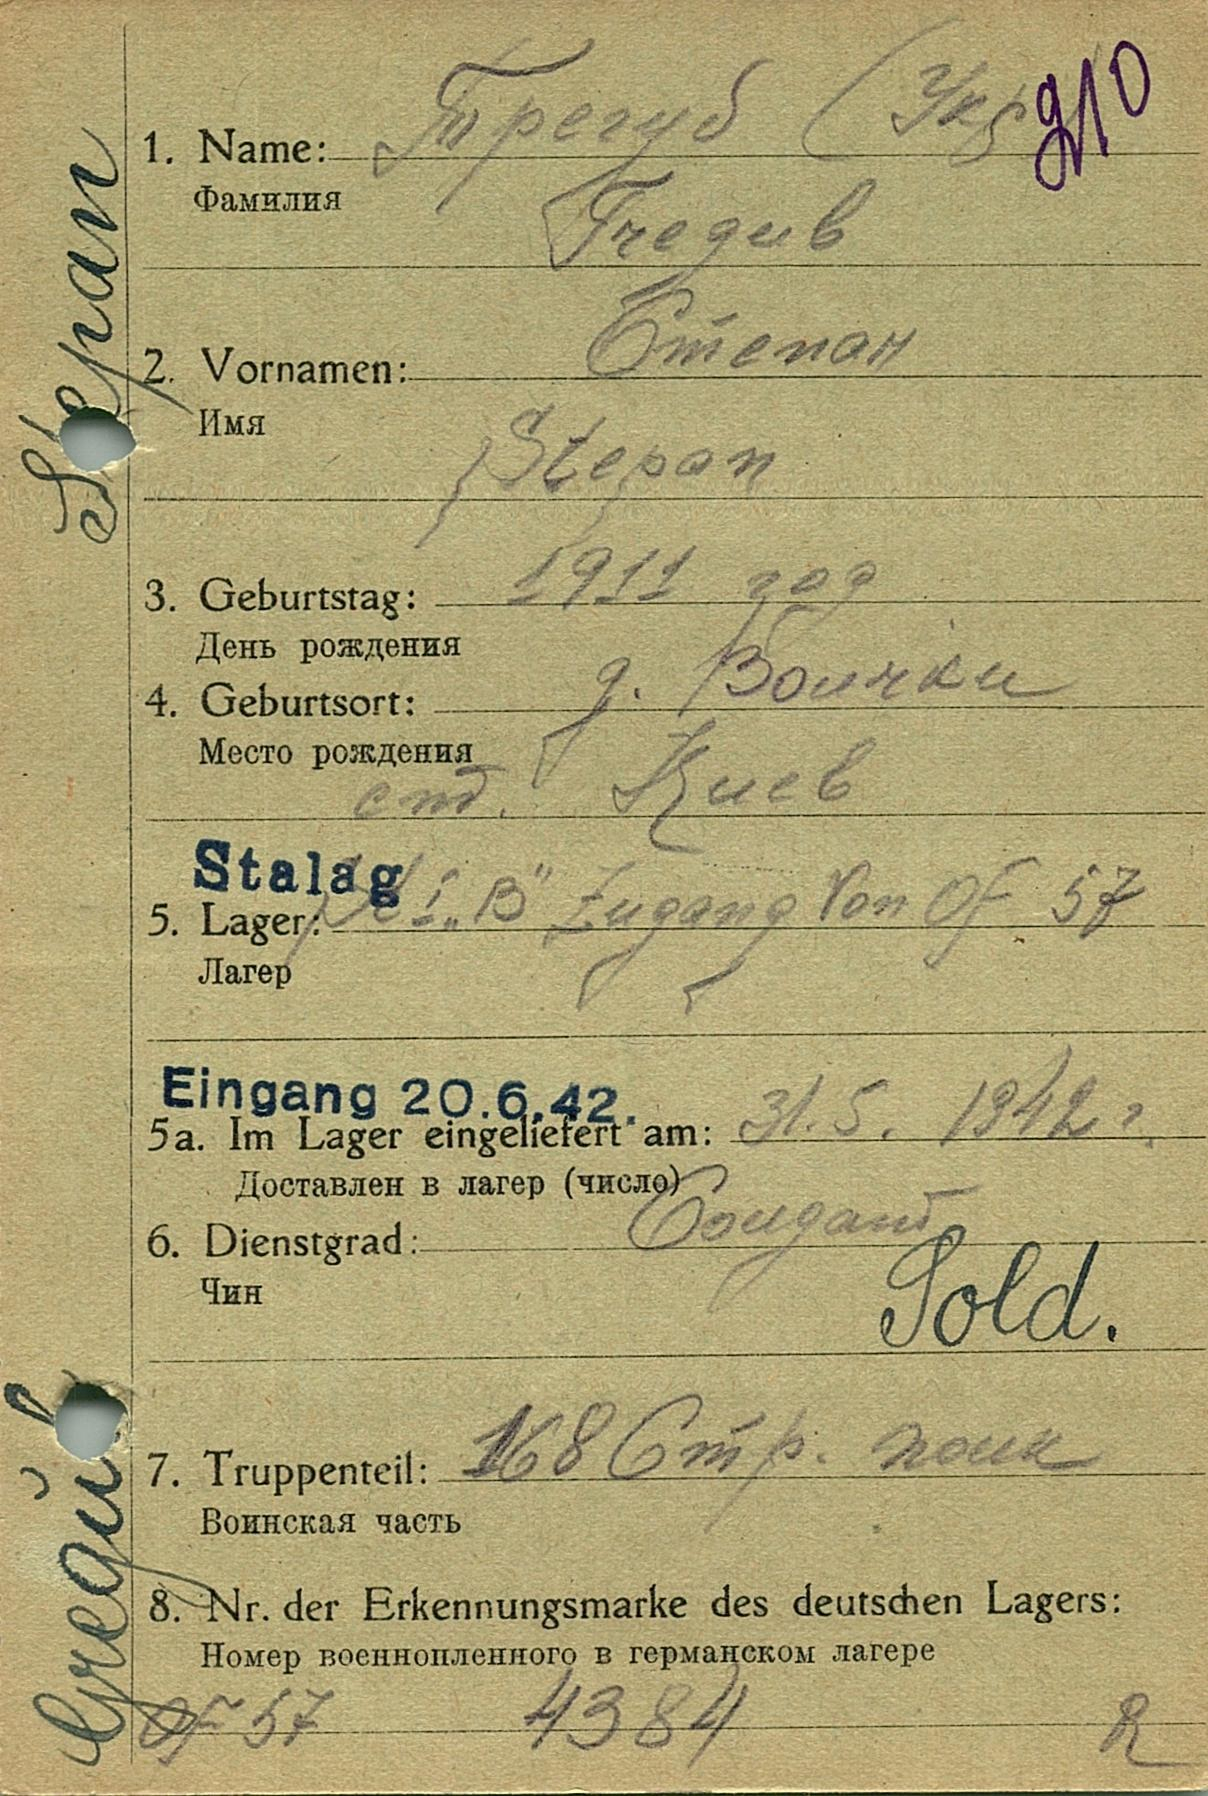 910
1. Name: Трегуб (Укр
Фамилия
Tregub
2. Vornamen: Степан
Имя
Stepan
3. Geburtstag: 1911 год
День рождения
4. Geburtsort: д.
Место рождения
ст. Киев
Stalag
5. Lager: "B" Zugang Von OF 57
Лагер
Eingang 20.6.42.
5a. Im Lager eingeliefert am: 31.5. 1942 г.
Доставлен в лагер (число)
6. Dienstgrad: Солдат
Чин
Sold.
7. Truppenteil: 168 Стр. полк
Воинская часть
8. Nr. der Erkennungsmarke des deutschen Lagers:
Номер военнопленного в германском лагере
OF 57 4384 R
Stepan